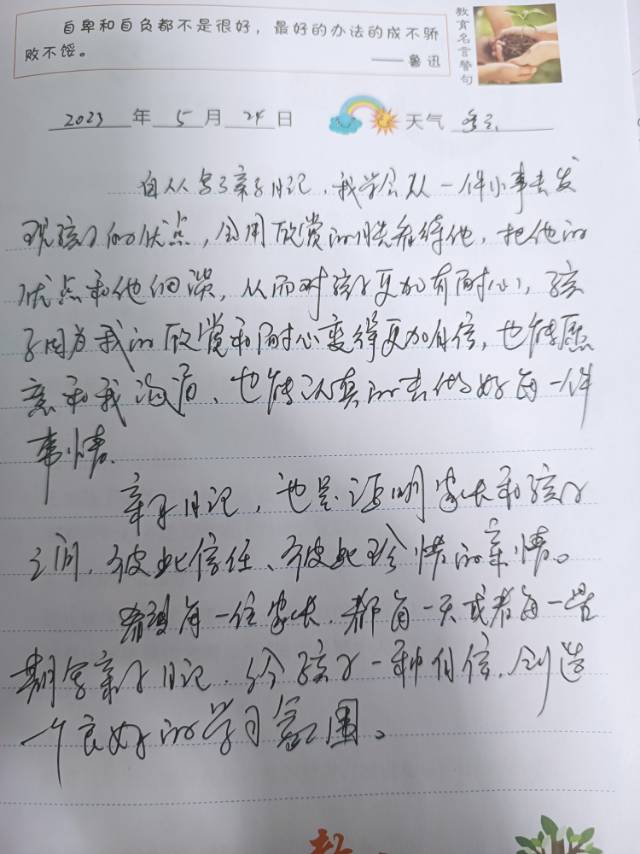 自卑和自负都不是很好，最好的办法的成不骄
败不馁。
——鲁迅
教育名言警句
2023年5月24日 天气 多云
自从写了亲子日记，我学会从一件小事去发
现孩子的优点，会用欣赏的眼光看待他，把他的
优点和他回馈，从而对孩子更加有耐心，孩
子因为我的欣赏和耐心变得更加自信，也能愿
意和我沟通、也能认真的去做好每一件
事情。
亲子日记，也是证明家长和孩子
之间，彼此信任、彼此珍惜的亲情。
希望每一位家长，都每一天或者每一星
期写亲子日记，给孩子一种自信，创造
一个良好的学习氛围。